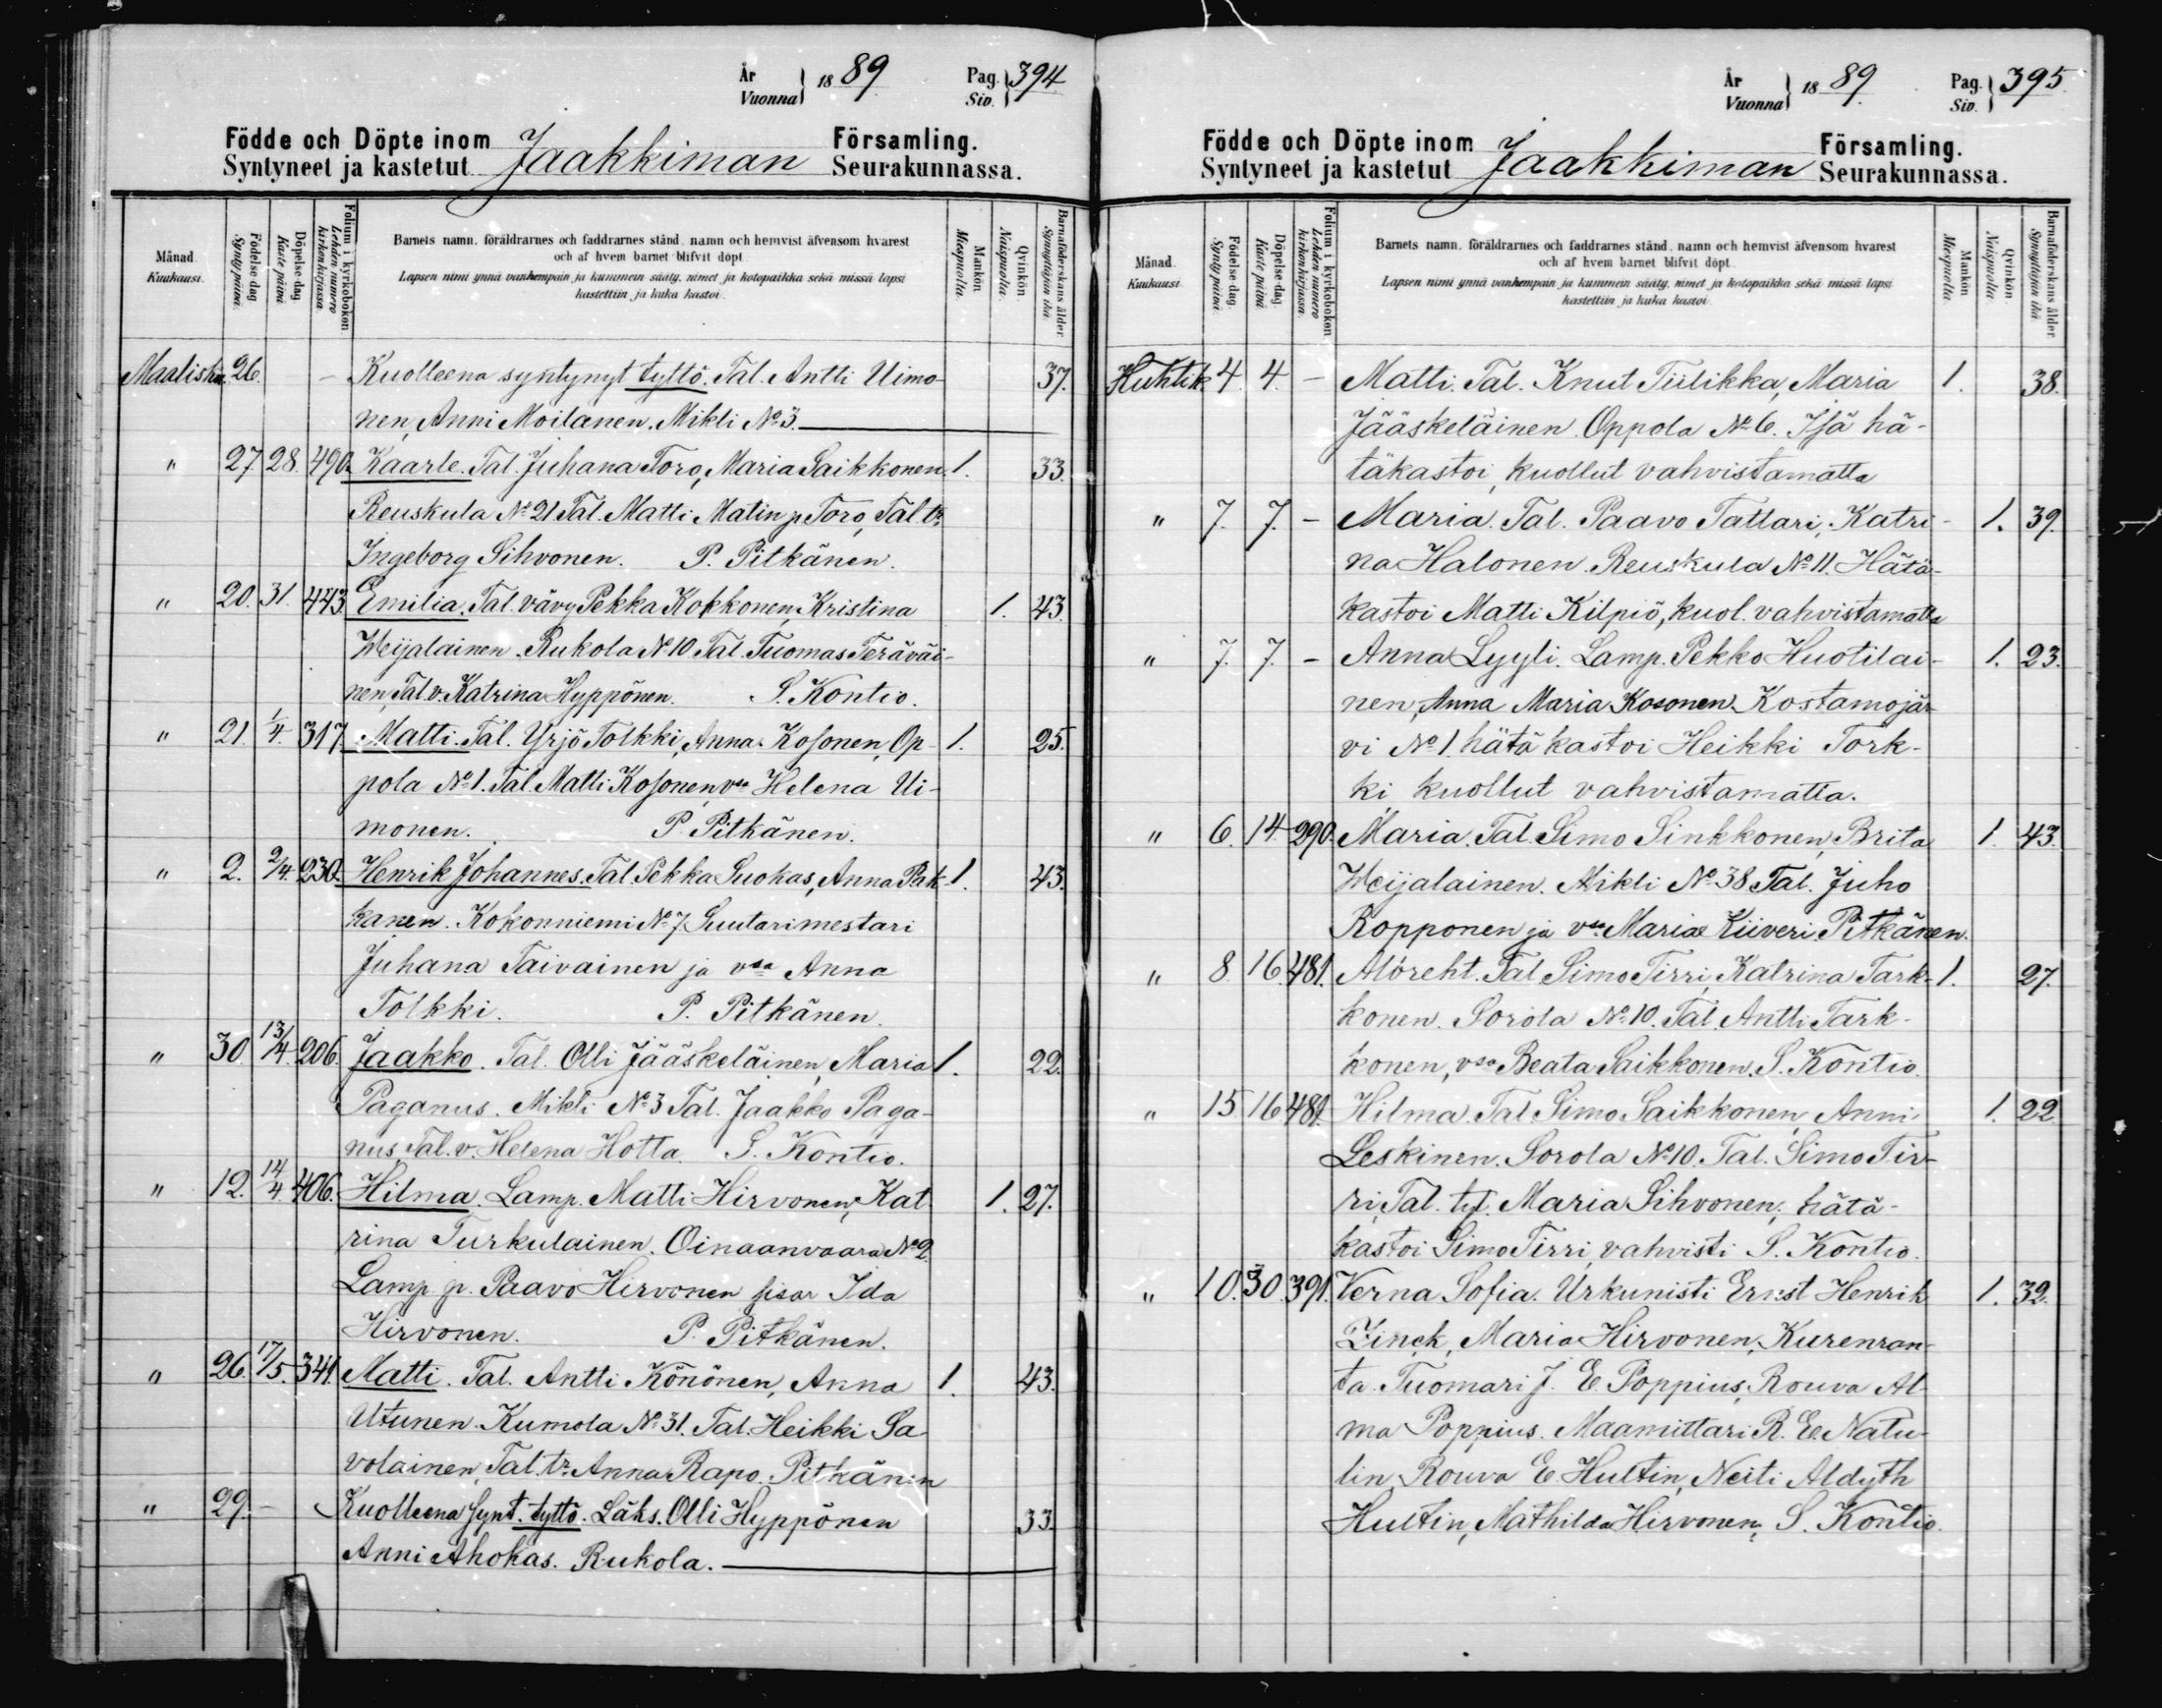 År
Vuonna } 1889 Pag. Siv. } 394
Födde och Döpte inom Jaakkiman Församling.
Syntyneet ja kastetut Seurakunnassa.
Månad. Kuukausi. Födelse-dag. Synty päivä. Döpelse dag. Kaste päivä. Folium i kyrkoboken Lehden numero kirkonkirjassa. Barnets namn, föräldrarnes och faddrarnes stånd, namn och hemvist äfvensom hvarest
och af hvem barnet blifvit döpt.
Lapsen nimi ynnä vanhempain ja kummein sääty, nimet ja kotopaikka sekä missä lapsi
kastettiin ja kuka kastoi.
Mankön Miespuolta. Qvinkön Naispuolta. Barnaföderskans ålder. Synnyttäjän ikä.
Maalisku. 26. – Kuolleena syntynyt tyttö. Tal. Antti Uimo- 37.
nen, Anni Moilanen. Mikli No 3.
" 27. 28. 490. Kaarle. Tal. Juhana Toro, Maria Saikkonen. 1. 33.
Reuskula No 21 Tal. Matti Matin p. Toro, Tal. tr.
Ingeborg Sihvonen. P. Pitkänen.
" 20. 31. 443 Emilia. Tal. vävy Pekka Kokkonen, Kristina 1. 43.
Weijalainen. Rukola No 10 Tal. Tuomas Teräväi-
nen, Tal. v. Katrina Hyppönen. S. Kontio.
" 21. 1/4. 317 Matti. Tal. Yrjö Tolkki, Anna Kosonen, Op- 1. 25.
pola No 1. Tal. Matti Kosonen, vsa Helena Ui-
monen. P. Pitkänen.
" 2. 2/4. 230. Henrik Johannes. Tal. Pekka Suokas, Anna Pak- 1. 43.
kanen. Kokonniemi No 7. Suutarimestari
Juhana Taivainen ja vsa Anna
Tolkki. P. Pitkänen.
" 30. 13/4. 206. Jaakko. Tal. Olli Jääskeläinen, Maria 1. 22.
Paganus. Mikli No 3 Tal. Jaakko Paga-
nus, Tal. v. Helena Hotta. S. Kontio.
" 12. 14/4 406. Hilma. Lamp. Matti Hirvonen, Kat- 1. 27.
rina Turkulainen. Oinaanvaara No 2.
Lamp. p. Paavo Hirvonen sisar Ida
Hirvonen. P. Pitkänen.
" 26. 17/5. 341. Matti. Tal. Antti Könönen, Anna 1. 43.
Utunen. Kumola No 31. Tal. Heikki Sa-
volainen, Tal. tr. Anna Rapo. Pitkänen
" 29. – Kuolleena synt. tyttö. Läks. Olli Hyppönen 33.
Anni Ahokas. Rukola.
År
Vuonna } 1889. Pag. Siv. } 395
Födde och Döpte inom Jaakkiman Församling.
Syntyneet ja kastetut Seurakunnassa.
Månad. Kuukausi. Födelse-dag. Synty päivä. Döpelse-dag. Kaste päivä. Folium i kyrkoboken Lehden numero kirkonkirjassa. Barnets namn, föräldrarnes och faddrarnes stånd, namn och hemvist äfvensom hvarest
och af hvem barnet blifvit döpt.
Lapsen nimi ynnä vanhempain ja kummein sääty, nimet ja kotopaikka sekä missä lapsi
kastettiin ja kuka kastoi.
Mankön Miespuolta. Qvinkön Naispuolta. Barnaföderskans ålder. Synnyttäjän ikä.
Huhtik 4. 4. – Matti. Tal. Knut Tiilikka, Maria 1. 38.
Jääskeläinen. Oppola No 6. Isä hä-
täkastoi, kuollut vahvistamatta
" 7. 7. – Maria. Tal. Paavo Tattari, Katri- 1. 39.
na Halonen. Reuskula No 11. Hätä-
kastoi Matti Kilpiö, kuol. vahvistamatta
" 7. 7. – Anna Lyyli. Lamp. Pekko Huotilai- 1. 23.
nen, Anna Maria Kosonen. Kostamojär-
vi No 1. hätäkastoi Heikki Tork-
ki kuollut vahvistamatta.
" 6. 14. 290. Maria. Tal. Simo Sinkkonen, Brita 1. 43.
Weijalainen. Mikli No 38 Tal. Juho
Ropponen ja vsa Maria Kiiveri. Pitkänen.
" 8 16. 481. Albreht. Tal. Simo Tirri, Katrina Tark- 1. 27.
konen. Sorola No 10. Tal. Antti Tark-
konen, vsa Beata Saikkonen. S. Kontio.
" 15 16 481. Hilma. Tal. Simo Saikkonen, Anni 1. 22
Leskinen. Sorola No 10. Tal. Simo Tir-
ri, Tal. tyt. Maria Sihvonen, hätä-
kastoi Simo Tirri, vahvisti S. Kontio.
" 10. 30 391. Verna Sofia. Urkunisti Ernst Henrik 1. 32.
Zinck, Maria Hirvonen, Kurenran-
ta. Tuomari J. E. Poppius, Rouva Al-
ma Poppius. Maamittari R. E. Natu-
lin, Rouva E. Hultin, Neiti Aldyth
Hultin, Mathilda Hirvonen, S. Kontio.